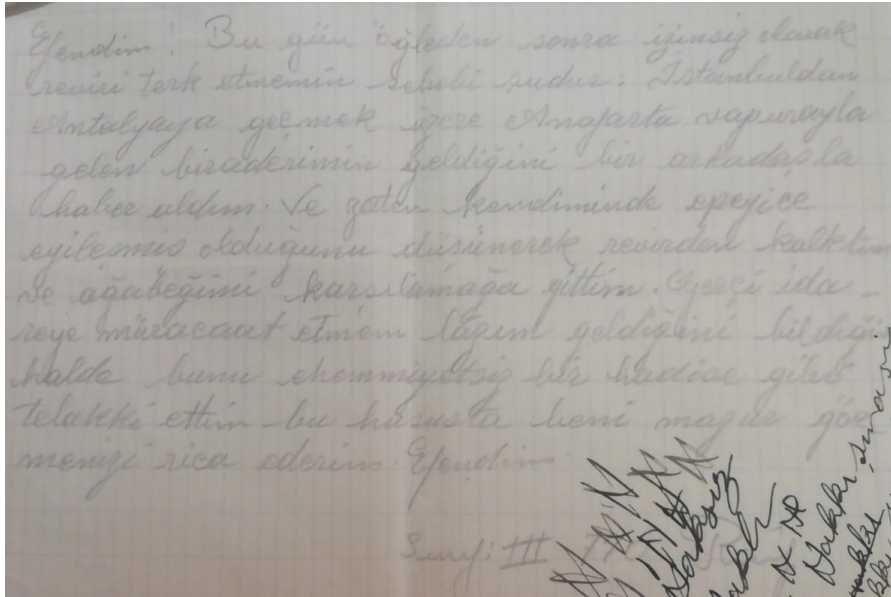 Efendim! Bu gün öğleden sonra izinsiz olarak
reviri terk etmemin sebebi şudur: İstanbuldan
Antalyaya geçmek üzere Anafarta vapurayla
gelen biraderimin geldiğini bir arkadaşla
haber aldım. Ve zaten kendiminde epeyice
eyileşmiş olduğunu düşünerek revirden kalktım
ve ağabeğimi karşılamağa gittim. Gerçi ida-
reye müracaat etmem lâzım geldiğini bildiğim
halde bunu ehemmiyetsiz bir hadise gibi
telakki ettim bu hususta beni mazur gör
menizi rica ederim Efendim
Sınıf: III
Hakkı
Hakkı, şinasi